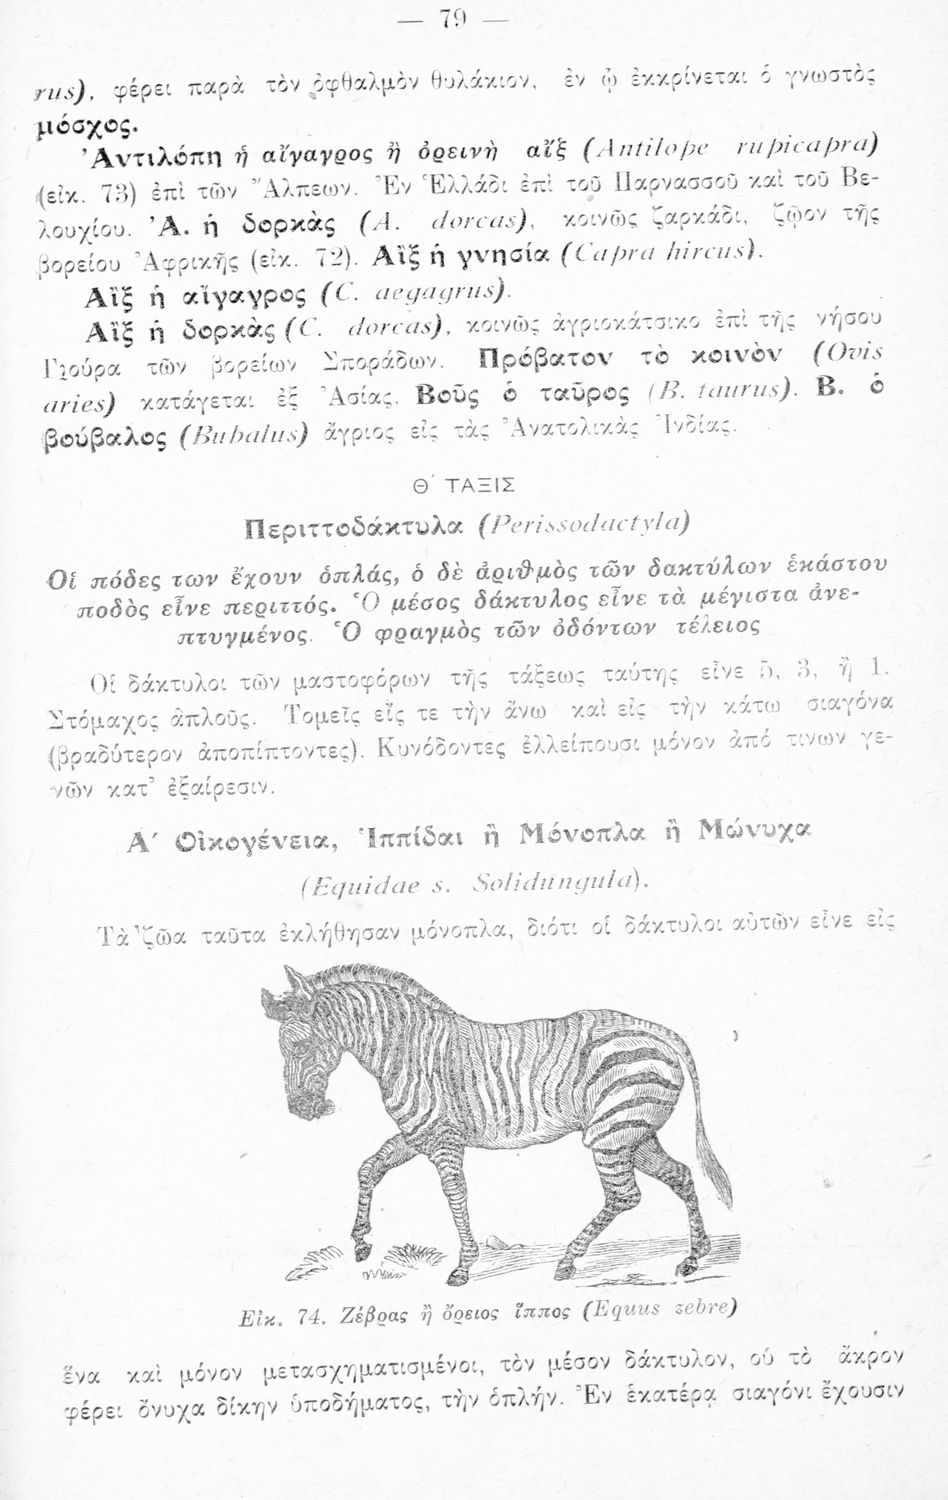 — 79 —
rus), φέρει παρὰ τὸν ὀφθαλμὸν θυλάκιον, ἐν ᾧ ἐκκρίνεται ὁ γνωστὸς
μόσχος.
Ἀντιλόπη ἡ αἴγαγρος ἢ ὀρεινὴ αἴξ (Antilope rupicapra)
(εἰκ. 73) ἐπὶ τῶν Ἄλπεων. Ἐν Ἑλλάδι ἐπὶ τοῦ Παρνασσοῦ καὶ τοῦ Βε-
λουχίου. Ἀ. ἡ δορκὰς (A. dorcas), κοινῶς ζαρκάδι, ζῷον τῆς
βορείου Ἀφρικῆς (εἰκ. 72). Αἲξ ἡ γνησία (Capra hircus).
Αἲξ ἡ αἴγαγρος (C. aegagrus).
Αἲξ ἡ δορκὰς (C. dorcas), κοινῶς ἀγριοκάτσικο ἐπὶ τῆς νήσου
Γιούρα τῶν βορείων Σποράδων. Πρόβατον τὸ κοινὸν (Ovis
aries) κατάγεται ἐξ Ἀσίας. Βοῦς ὁ ταῦρος (B. taurus). Β. ὁ
βούβαλος (Bubalus) ἄγριος εἰς τὰς Ἀνατολικὰς Ἰνδίας.
Θ΄ ΤΑΞΙΣ
Περιττοδάκτυλα (Perissodactyla)
Οἱ πόδες των ἔχουν ὁπλάς, ὁ δὲ ἀριθμὸς τῶν δακτύλων ἑκάστου
ποδὸς εἶνε περιττός. Ὁ μέσος δάκτυλος εἶνε τὰ μέγιστα ἀνε-
πτυγμένος. Ὁ φραγμὸς τῶν ὀδόντων τέλειος
Οἱ δάκτυλοι τῶν μαστοφόρων τῆς τάξεως ταύτης εἶνε 5, 3, ἢ 1.
Στόμαχος ἁπλοῦς. Τομεῖς εἴς τε τὴν ἄνω καὶ εἰς τὴν κάτω σιαγόνα
(βραδύτερον ἀποπίπτοντες). Κυνόδοντες ἐλλείπουσι μόνον ἀπό τινων γε-
νῶν κατ' ἐξαίρεσιν.
Α΄ Οἰκογένεια, Ἱππίδαι ἢ Μόνοπλα ἢ Μώνυχα
(Equidae s. Solidungula).
Τὰ ζῶα ταῦτα ἐκλήθησαν μόνοπλα, διότι οἱ δάκτυλοι αὐτῶν εἶνε εἰς
Εἰκ. 74. Ζέβρας ἢ ὄρειος ἵππος (Equus zebre)
ἕνα καὶ μόνον μετασχηματισμένοι, τὸν μέσον δάκτυλον, οὗ τὸ ἄκρον
φέρει ὄνυχα δίκην ὑποδήματος, τὴν ὁπλήν. Ἐν ἑκατέρᾳ σιαγόνι ἔχουσιν